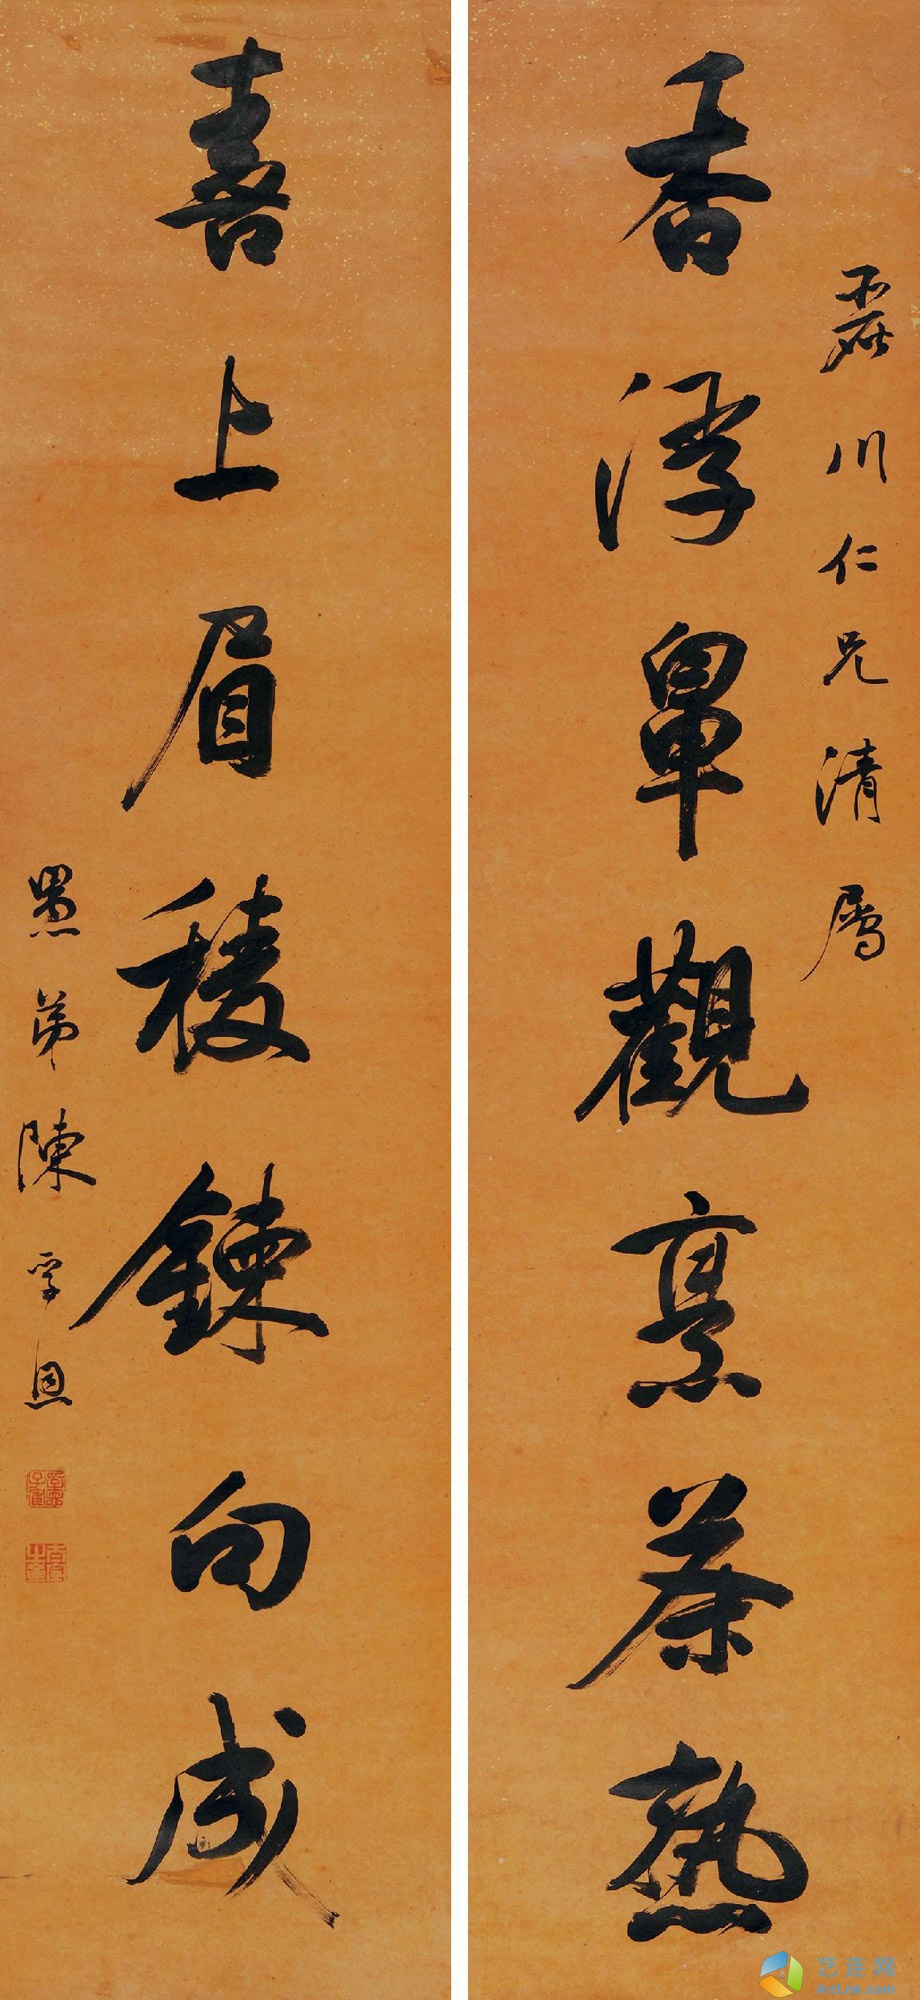 磊川仁兄清屬
香浮鼻觀烹茶熟
喜上眉稜鍊句成
愚弟陳孚恩
艺连网
ArtLink.com